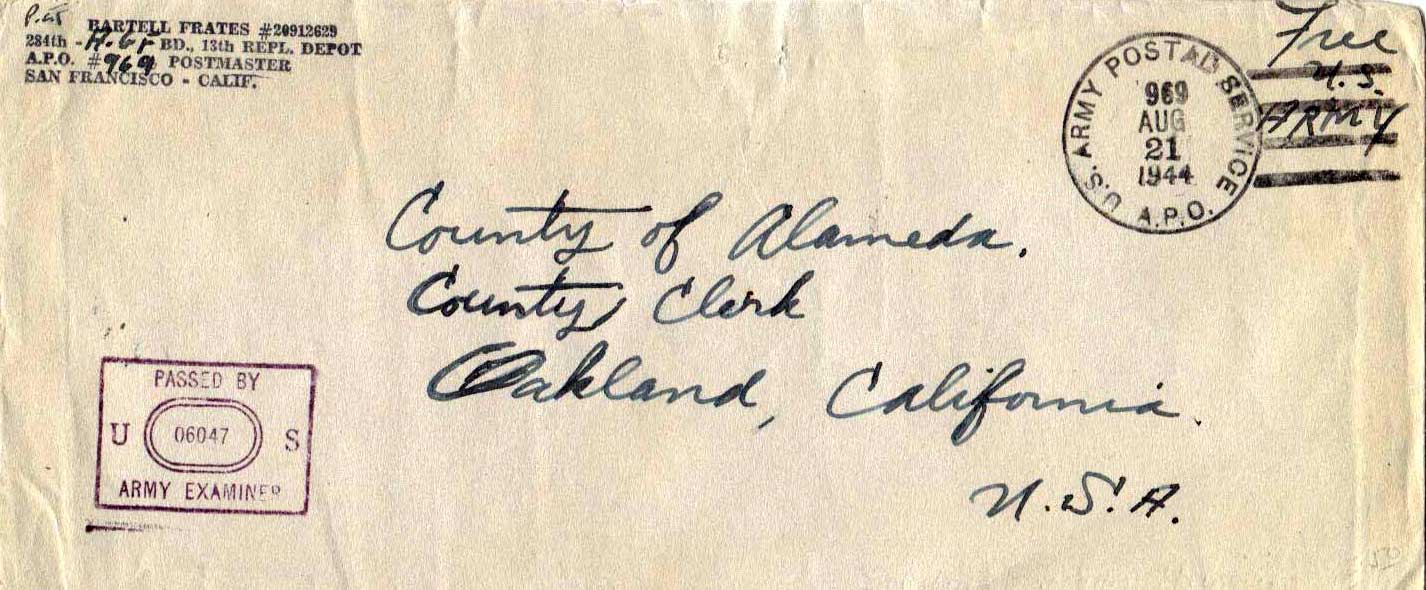 BARTELL FRATES #20912629
284th - BD., 13th REPL. DEPOT
A.P.O. #969 POSTMASTER
SAN FRANCISCO - CALIF.
Free
U.S.
ARMY
U.S. ARMY POSTAL SERVICE
969
AUG
21
1944
A.P.O.
County of Alameda.
County Clerk
Oakland, California.
U.S.A.
PASSED BY
U 06047 S
ARMY EXAMINER